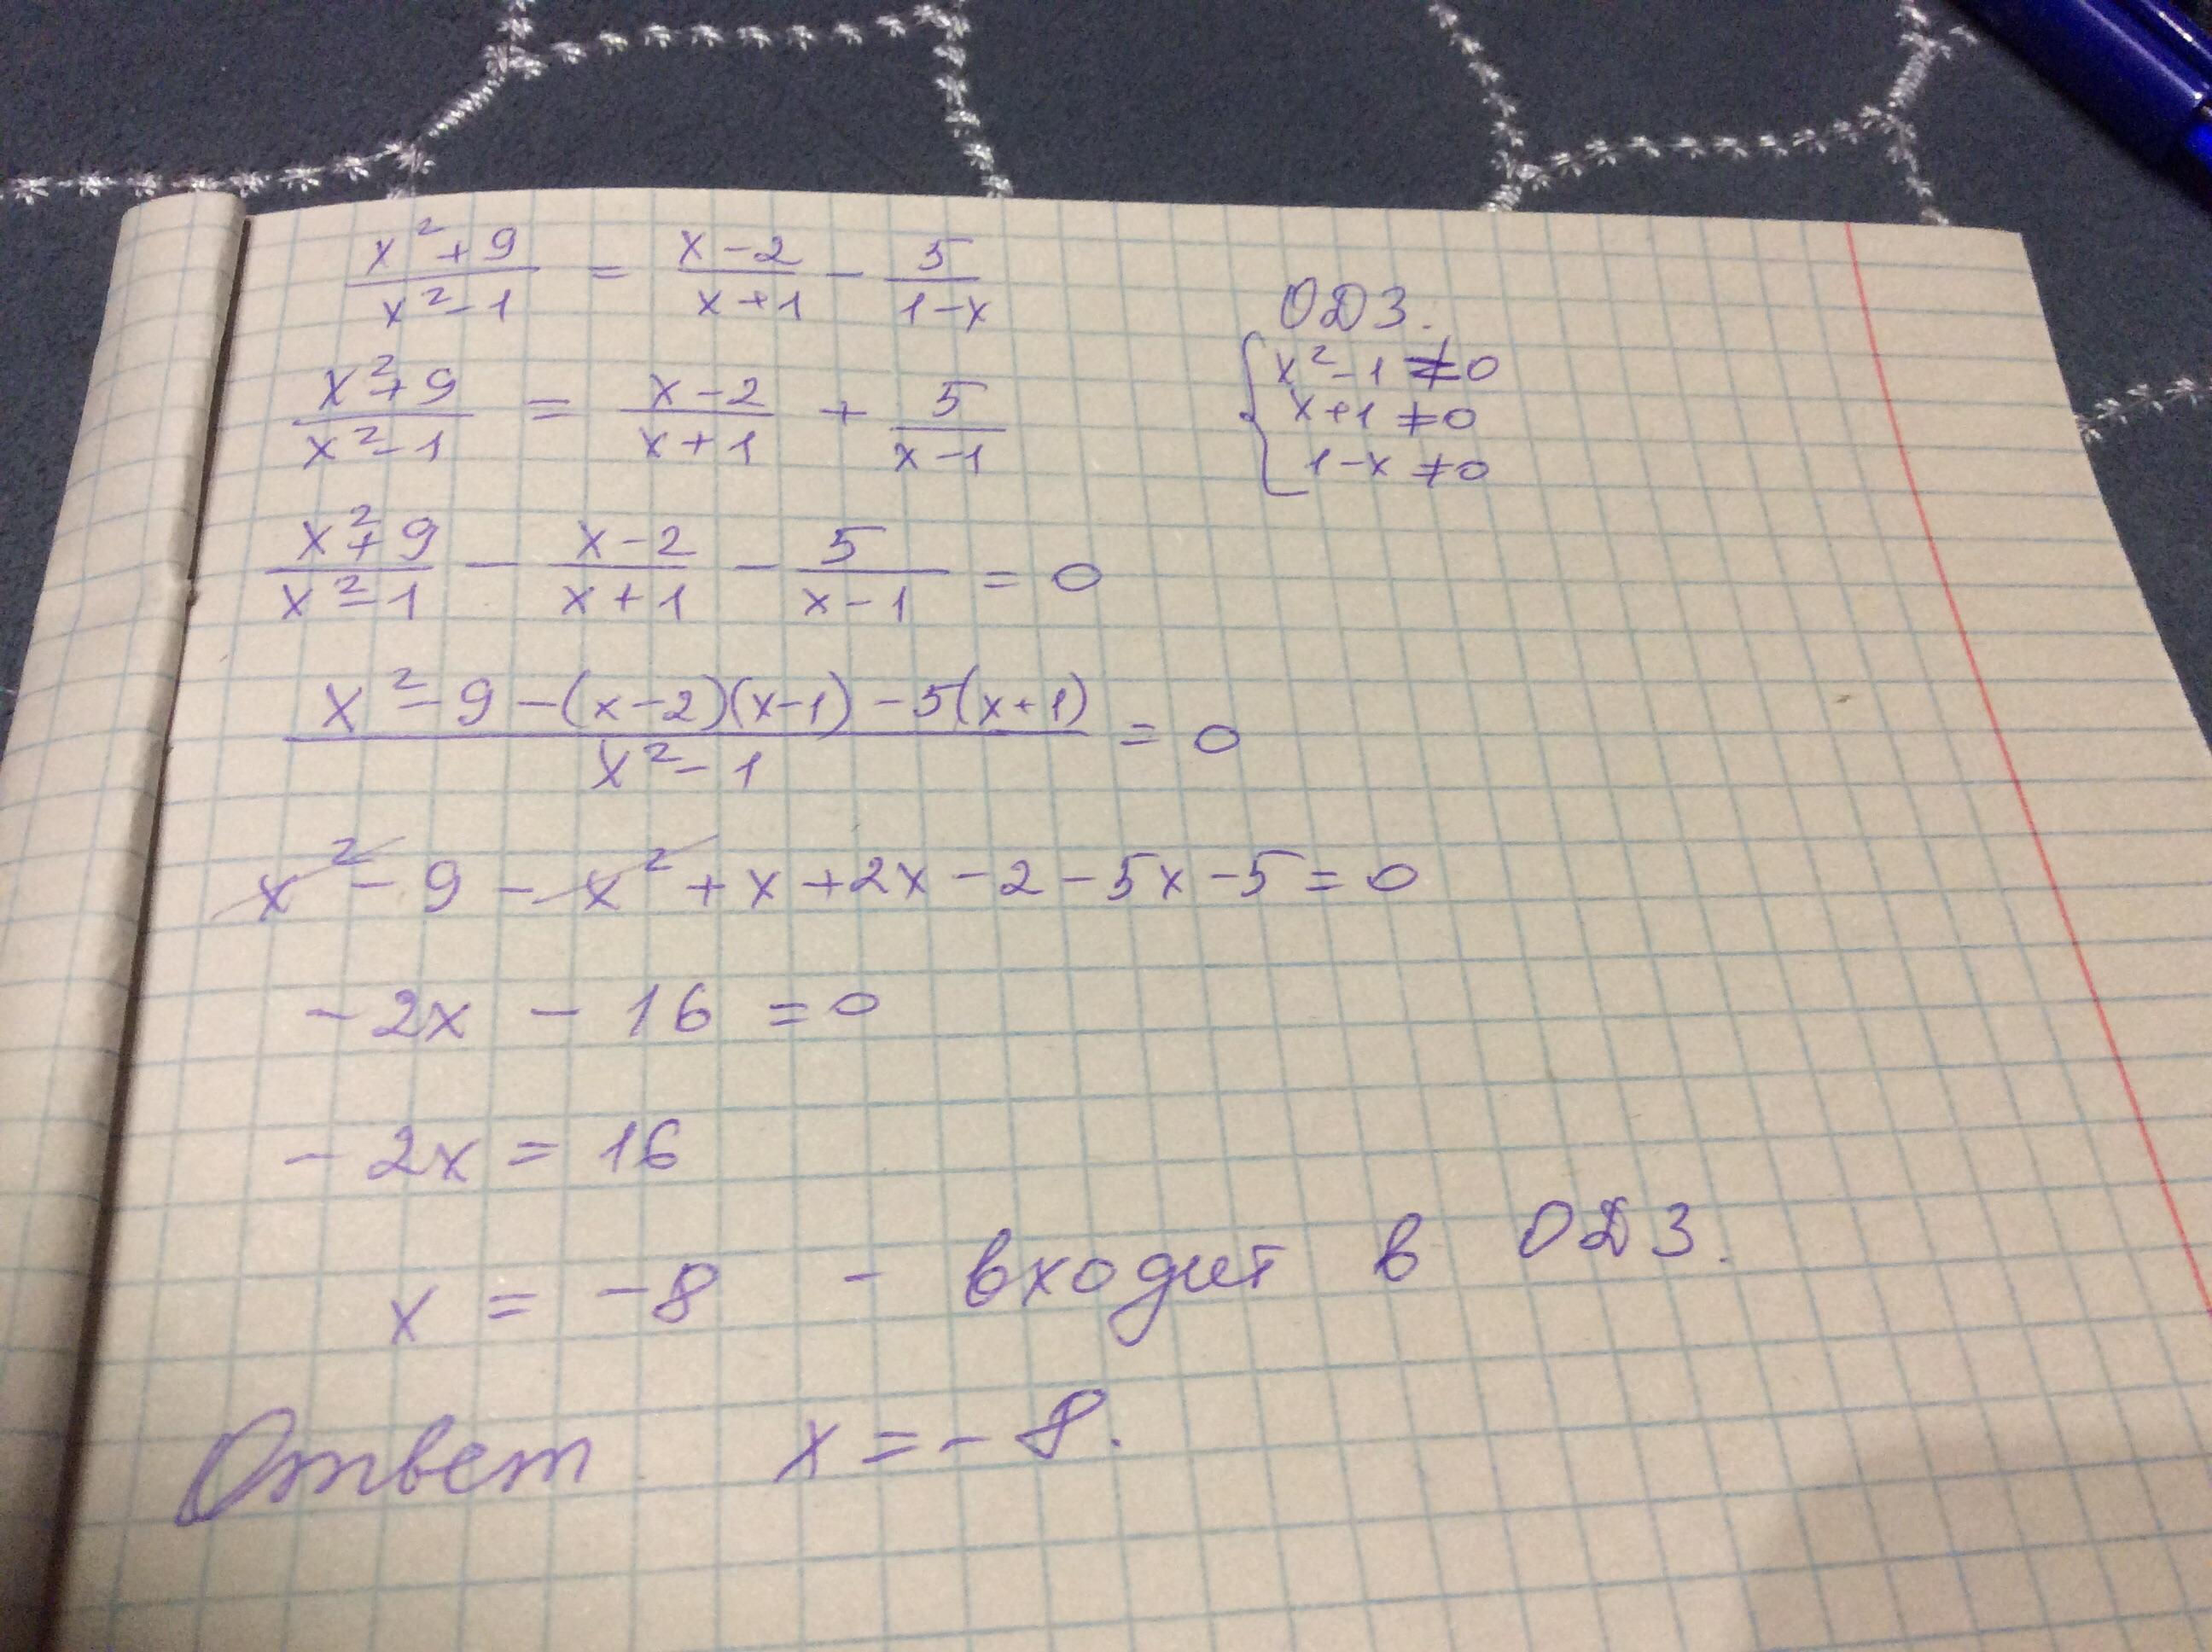 x²+9/x²-1 = x-2/x+1 - 5/1-x
ОДЗ.
x²-1≠0
x+1≠0
1-x≠0
x²+9/x²-1 = x-2/x+1 + 5/x-1
x²+9/x²-1 - x-2/x+1 - 5/x-1 = 0
x²-9-(x-2)(x-1)-5(x+1)/x²-1 = 0
x²-9-x²+x+2x-2-5x-5=0
-2x - 16 = 0
-2x = 16
x = -8 - входит в ОДЗ.
Ответ x=-8.